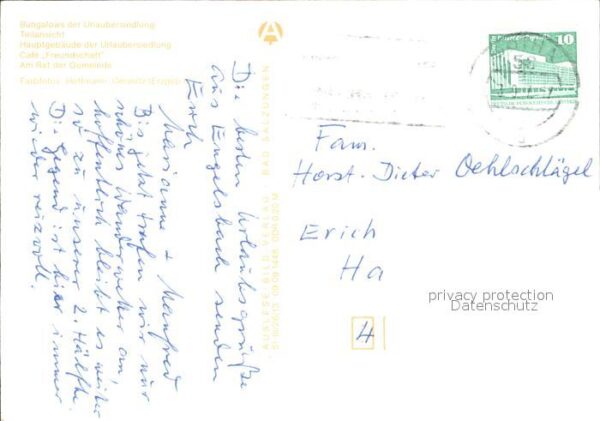 Bungalows der Urlaubersiedlung
Teilansicht
Hauptgebäude der Urlaubersiedlung
Café „Freundschaft"
Am Rat der Gemeinde
Farbfotos: Hoffmann,
AUSLESE-BILD-VERLAG BAD SALZUNGEN
10
Die besten Urlaubsgrüße
aus Engelsbach senden
Euch
Marianne + Manfred
Bis jetzt trafen wir nur
schönes Wanderwetter an,
hoffentlich bleibt es weiter
so zu unserer 2. Hälfte.
Die Gegend ist hier immer
wieder reizvoll.
Fam.
Horst-Dieter Oehlschlägel
Erich
Ha
4
privacy protection
Datenschutz